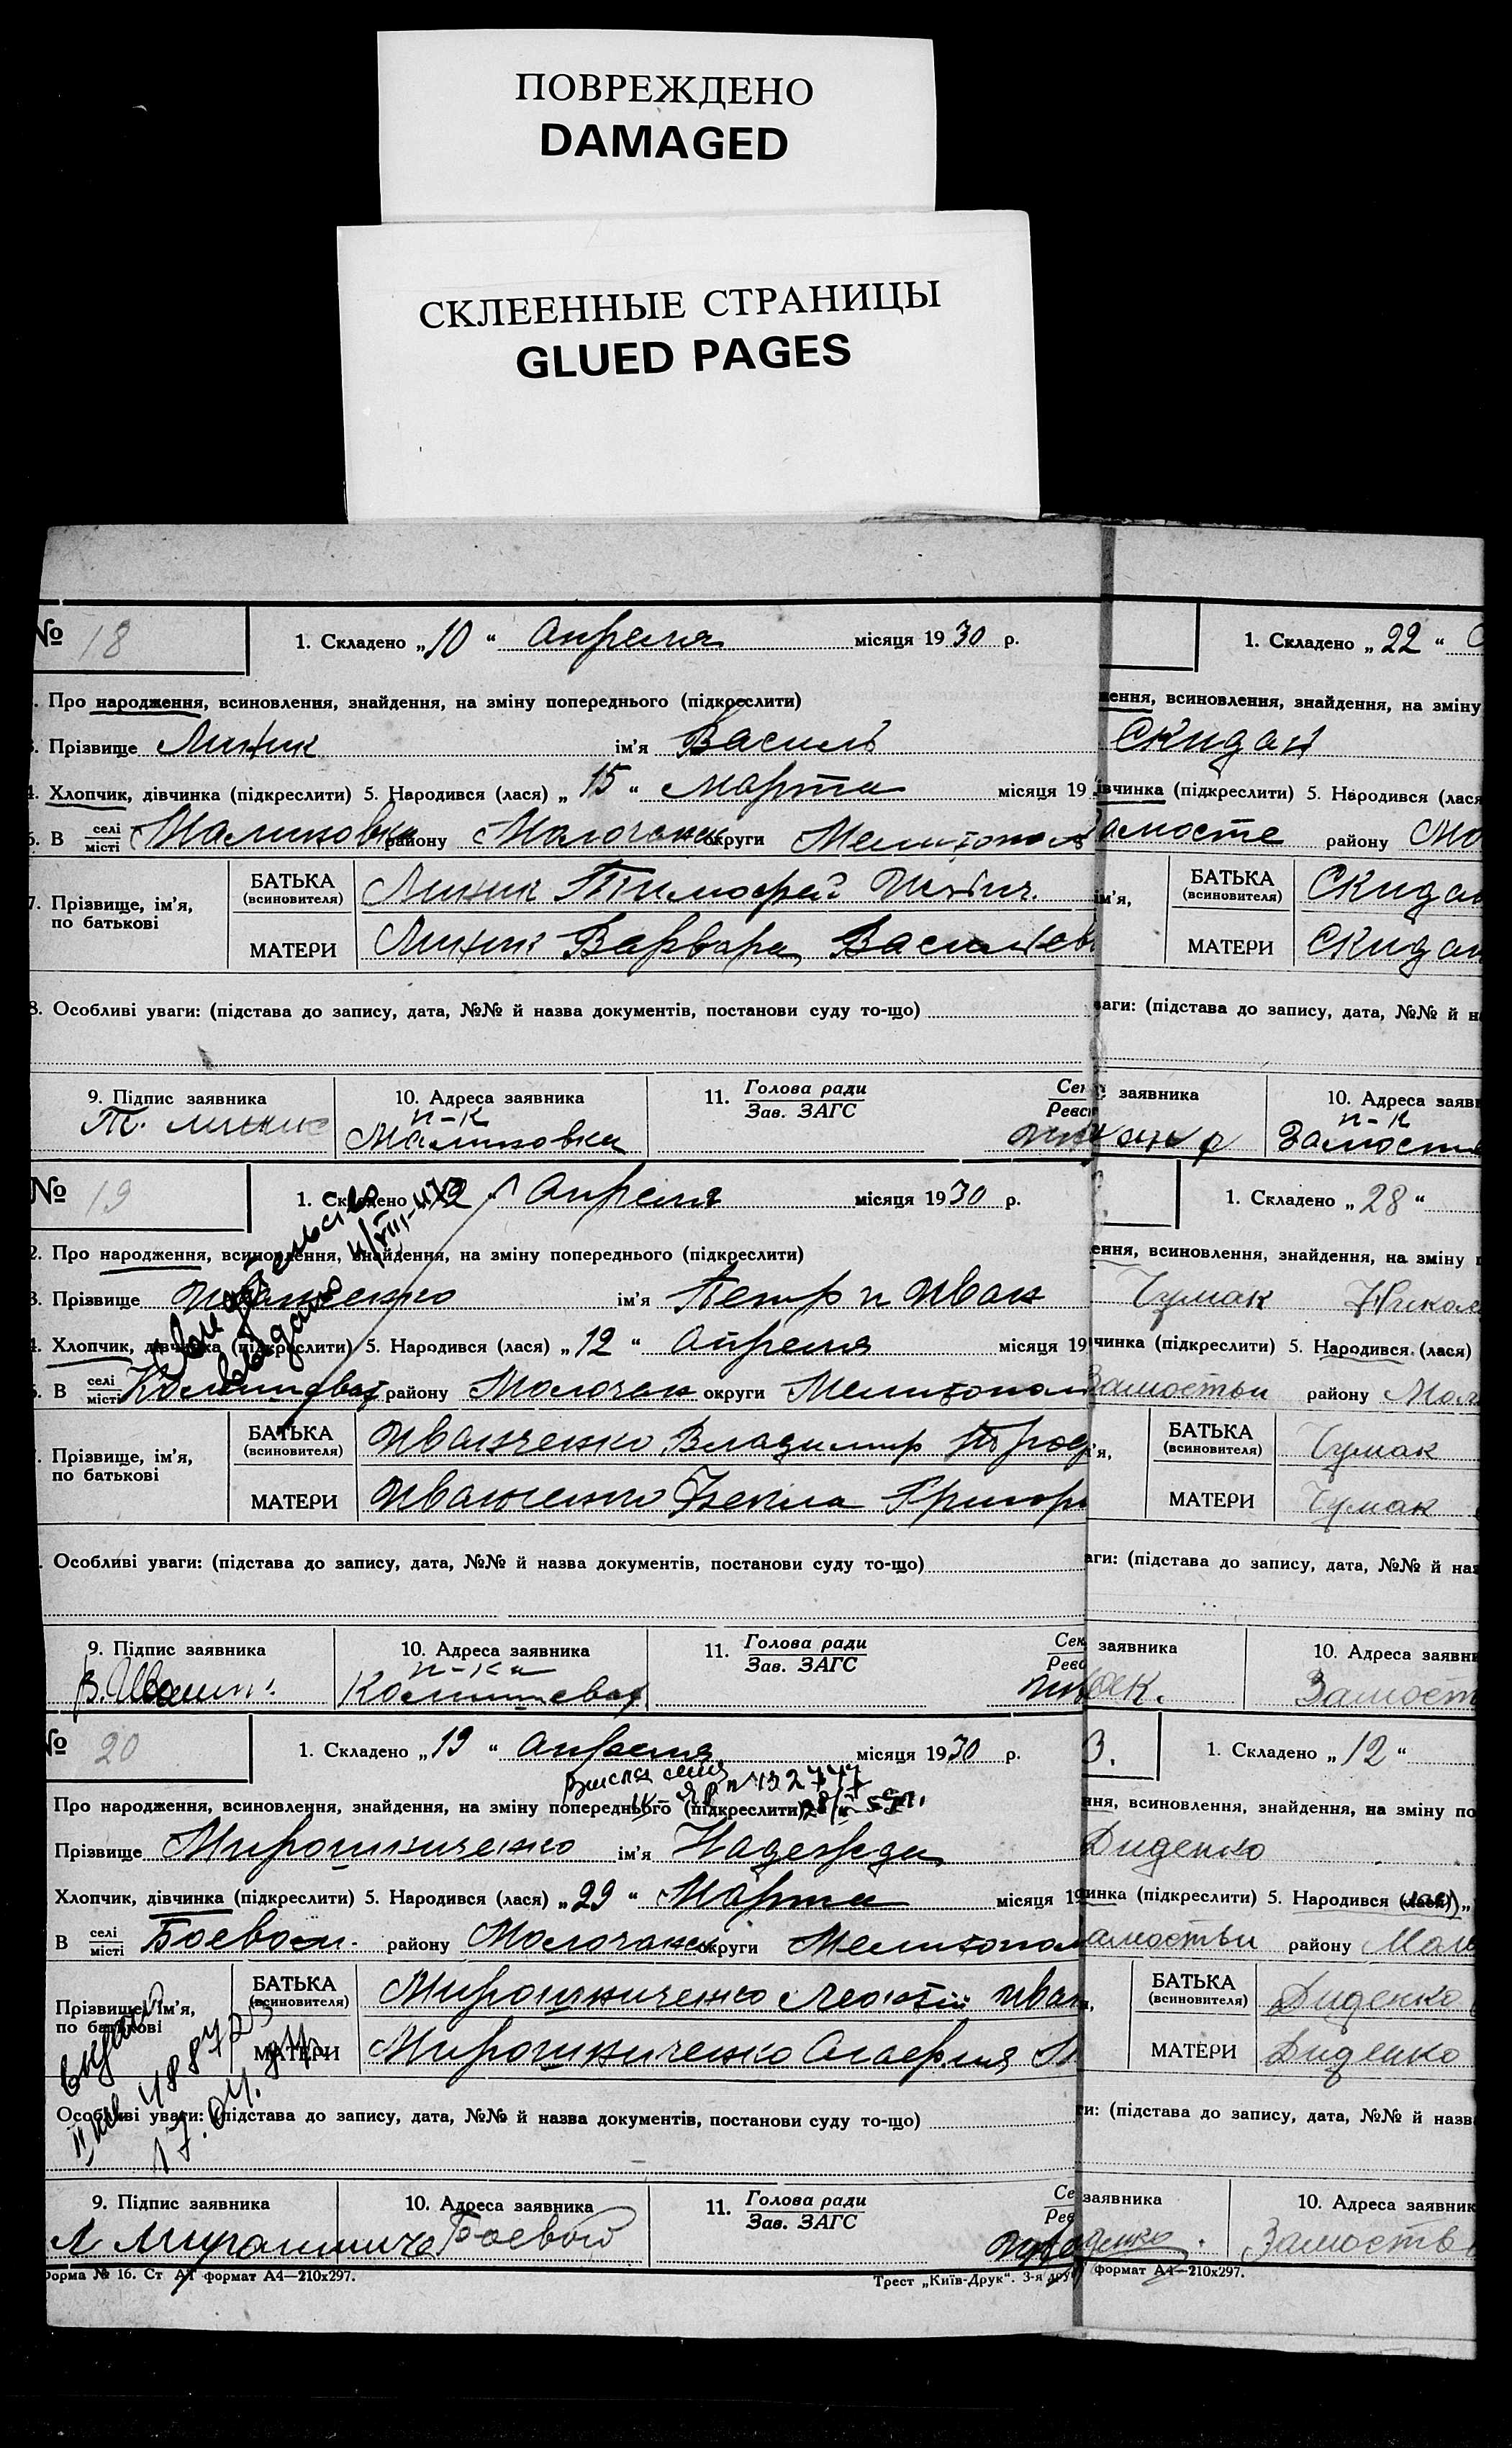 ПОВРЕЖДЕНО
DAMAGED
СКЛЕЕННЫЕ СТРАНИЦЫ
GLUED PAGES
№ 18
1. Складено „10“ Апреля місяця 1930 р.
. Про народження, всиновлення, знайдення, на зміну попереднього (підкреслити)
3. Прізвище Линник ім'я Василь
4. Хлопчик, дівчинка (підкреслити) 5. Народився (лася) „15“ Марта місяця 19
6. В селі місті Малиновка району Молочанск округи Мелитопол
7. Прізвище, ім'я, по батькові
БАТЬКА (всиновителя) Линик Тимофей
МАТЕРИ Линик Варвара Василев
8. Особливі уваги: (підстава до запису, дата, №№ й назва документів, постанови суду то-що)
9. Підпис заявника 10. Адреса заявника 11. Голова ради Зав. ЗАГС
Т. Линик п-к Малиновка
№ 19
1. Складено „12“ Апреля місяця 1930 р.
Свидетельство выдано
2. Про народження, всиновлення, знайдення, на зміну попереднього (підкреслити)
3. Прізвище Иванченко ім'я Петр и Иван
4. Хлопчик, дівчинка (підкреслити) 5. Народився (лася) „12“ Апреля місяця 19
. В селі місті району Молочан округи Мелитопол
. Прізвище, ім'я, по батькові
БАТЬКА (всиновителя) Иванченко Владимир
МАТЕРИ Иванченко Текла Григор
. Особливі уваги: (підстава до запису, дата, №№ й назва документів, постанови суду то-що)
9. Підпис заявника 10. Адреса заявника 11. Голова ради Зав. ЗАГС
№ 20
1. Складено „19“ Апреля місяця 1930 р.
Про народження, всиновлення, знайдення, на зміну попереднього (підкреслити)
Прізвище Мирошниченко ім'я Надежда
Хлопчик, дівчинка (підкреслити) 5. Народився (лася) „29“ Марта місяця 19
В селі місті Боевой району Молочанск округи Мелитопол
Прізвище, ім'я, по батькові
БАТЬКА (всиновителя) Мирошниченко Леонтий Иван
МАТЕРИ Мирошниченко Агафия
17.04.
Особливі уваги: (підстава до запису, дата, №№ й назва документів, постанови суду то-що)
9. Підпис заявника 10. Адреса заявника 11. Голова ради Зав. ЗАГС
Боевой
форма № 16. Ст А4 формат А4—210x297.
Трест „Київ-Друк“. 3-я
1. Складено „22“
ення, всиновлення, знайдення, на зміну
Скидан
івчинка (підкреслити) 5. Народився (лася
Замосте району Мо
ім'я,
БАТЬКА (всиновителя) Скидан
МАТЕРИ Скидан
ваги: (підстава до запису, дата, №№ й на
заявника 10. Адреса заявн
п-к
1. Складено „28“
ення, всиновлення, знайдення, на зміну
Чумак Никол
чинка (підкреслити) 5. Народився (лася)
Замостьи району Мол
БАТЬКА (всиновителя) Чумак
МАТЕРИ Чумак
аги: (підстава до запису, дата, №№ й наз
заявника 10. Адреса заявни
Замост
3.
1. Складено „12“
ння, всиновлення, знайдення, на зміну по
Диденко
инка (підкреслити) 5. Народився (лася) „
амостьи району Моло
БАТЬКА (всиновителя) Диденко
МАТЕРИ Диденко
ги: (підстава до запису, дата, №№ й назв
заявника 10. Адреса заявник
Замость
формат А4—210x297.